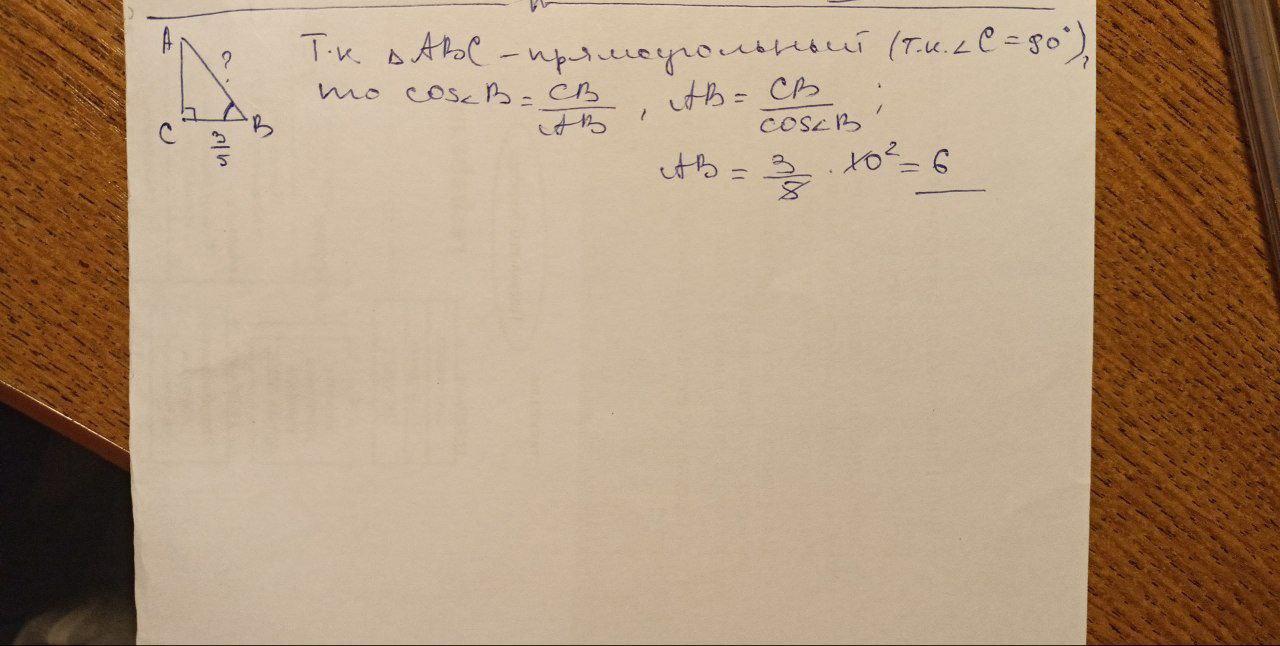 A
?
C
B
3/5
Т.к △ABC – прямоугольный (т.к. ∠C = 90°),
то cos∠B = CB/AB , AB = CB/cos∠B ;
AB = 3/5 · 10² = 6